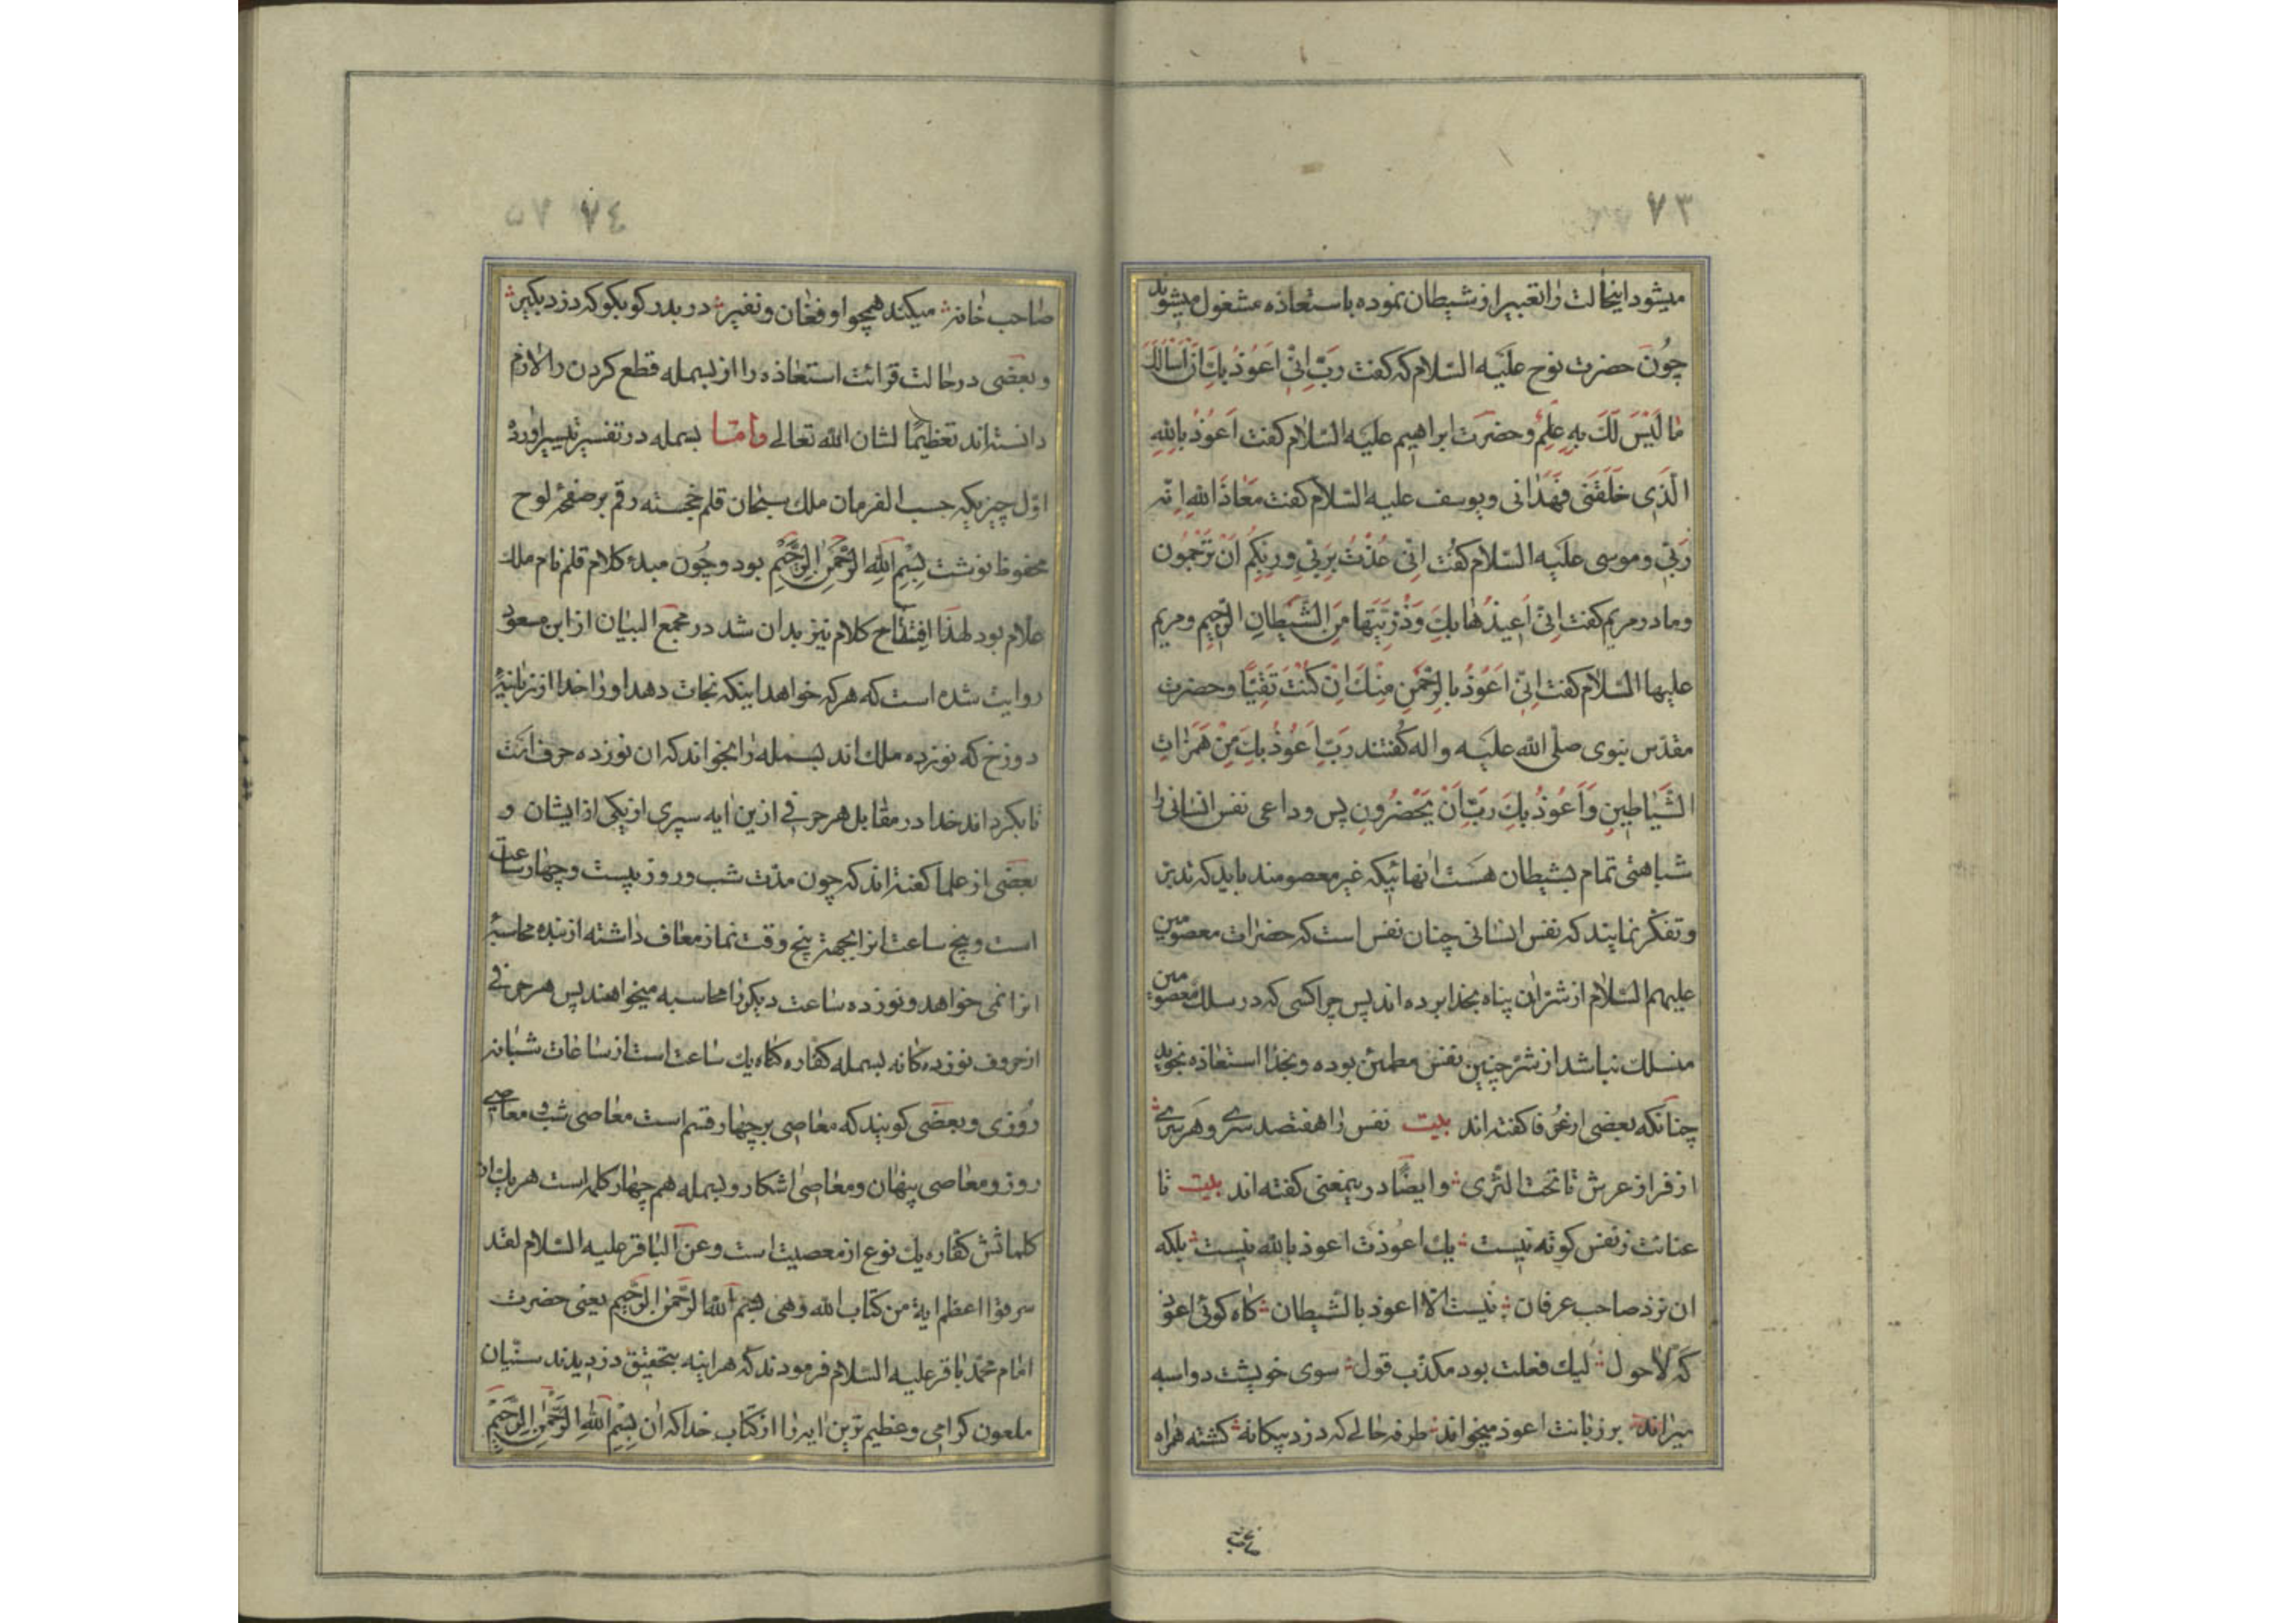 ٧٣
میشود اینحالت را تعبیر از شیطان نموده باستعاذه مشغول میشوند
چُون حضرت نوح عَلَیه السّلام که کفت رَبِّ اِنّی اَعُوذُ بِكَ اَنْ اَسْأَلَكَ
مٰا لَیْسَ لَكَ بِهِ عِلْمٌ و حضرت ابراهیم علیه السّلام کفت اَعُوذُ بِاللهِ
الَّذی خَلَقَنی فَهَدٰانی و یوسف علیه السّلام کفت مَعٰاذَ اللهِ اِنّه
رَبّی و موسی عَلَیه السّلام کفت اِنّی عُذْتُ بِرَبّی وَ رَبِّکُمْ اَنْ تَرْجُمُون
و مادر مریم کفت اِنّی اُعیذُهٰا بِكَ وَ ذُرّیَّتَهٰا مِنَ الشَّیْطٰانِ الرَّجیمِ و مریم
علیها السّلام کفت اِنّی اَعُوذُ بِالرَّحْمٰنِ مِنْكَ اِنْ کُنْتَ تَقِیّاً و حضرت
مقدّس نبوی صلّی الله علیه و اله کُفتند رَبِّ اَعُوذُ بِكَ مِنْ هَمَزٰاتِ
الشَّیٰاطینِ وَ اَعُوذُ بِكَ رَبِّ اَنْ یَحْضُرُونِ پس و داعی نفس انسانی را
شباهتی تمام بشیطان هست انهائیکه غیر معصومند باید که تدبّر
و تفکّر نمایند که نفس انسانی چنان نفس است که حضرات معصومین
علیهم السّلام از شرّ ان پناه بخدا برده اند پس چرا کسی که در سلك معصومین
منسلك نباشد از شرّ چنین نفس مطمئن بوده و بخدا استعاذه نجوید
چنانکه بعضی از عُرفا کفته اند بیت نفس را هفتصد سری و هر سری
از فراز عرش تا تحت الثّری و ایضاً در ینمعنی کفته اند بیت تا
عنانت ز نفس کوته نیست یك اعوذت اعوذ بالله نیست بلکه
ان نزد صاحب عرفان نیست الّا اعوذ بالشّیطان کاه کوئی اعوذ
که لاحول لیك فعلت بود مکذّب قول سوی خویشت دو اسبه
میراند بر زبانت اعوذ میخواند طرفه حالی که دزد بیکانه کشته همراه
صاحب خانه
٧٤ ٥٧
صاحب خانه میکند همچو او فغان و نفیر در بدر کو بکو که دزد بکیر
و بعضی در حالت قرائت استعاذه را از بسمله قطع کردن را لازم
دانسته اند تعظیماً لشان الله تعالی و امّا بسمله در تفسیر تیسیر اورده
اوّل چیزیکه حسب الفرمان ملك سبحان قلم خجسته رقم بر صفحهٔ لوح
محفوظ نوشت بِسْمِ اللهِ الرَّحْمٰنِ الرَّحیمِ بود و چُون مبدء کلام قلم نام ملك
علام بود لهذا اِفتتاح کلام نیز بدان شد در مجمع البیان از ابن مسعود
روایت شده است که هر که خواهد اینکه نجات دهد او را خدا از زبانیهٔ
دوزخ که نوزده ملك اند بسمله را بخواند که ان نوزده حرف است
تا بکرداند خدا در مقابل هر حرفی از ین ایه سپری از یکی از ایشان و
بعضی از علما کفته اند که چون مدّت شب و روز بیست و چهار ساعت
است و پنج ساعت انرا بجهة پنج وقت نماز معاف داشته از بنده محاسبهٔ
انرا نمی خواهد و نوزده ساعت دیکر را محاسبه میخواهند پس هر حرفی
از حروف نوزده کانه بسمله کفاره کناه یك ساعت است از ساعات شبانه
روزی و بعضی کویند که معاصی بر چهار قسم است معاصی شب و معاصی
روز و معاصی پنهان و معاصی اشکار و بسمله هم چهار کلمه است هر یك از
کلماتش کفاره یك نوع از معصیت است و عن الباقر علیه السّلام لقد
سرقوا اعظم ایة من کتاب الله و هی بسم الله الرَّحمٰن الرَّحیم یعنی حضرت
امام محمّد باقر علیه السّلام فرمودند که هر اینه بتحقیق دزدیدند سنّیان
ملعون کرامی و عظیم ترین ایه را از کتاب خدا که ان بِسْمِ اللهِ الرَّحْمٰنِ الرَّحیمِ